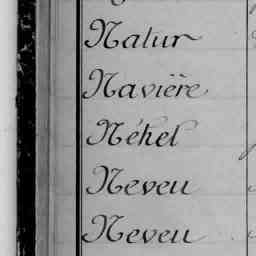 Natur
Navière
Néhel
Neveu
Neveu